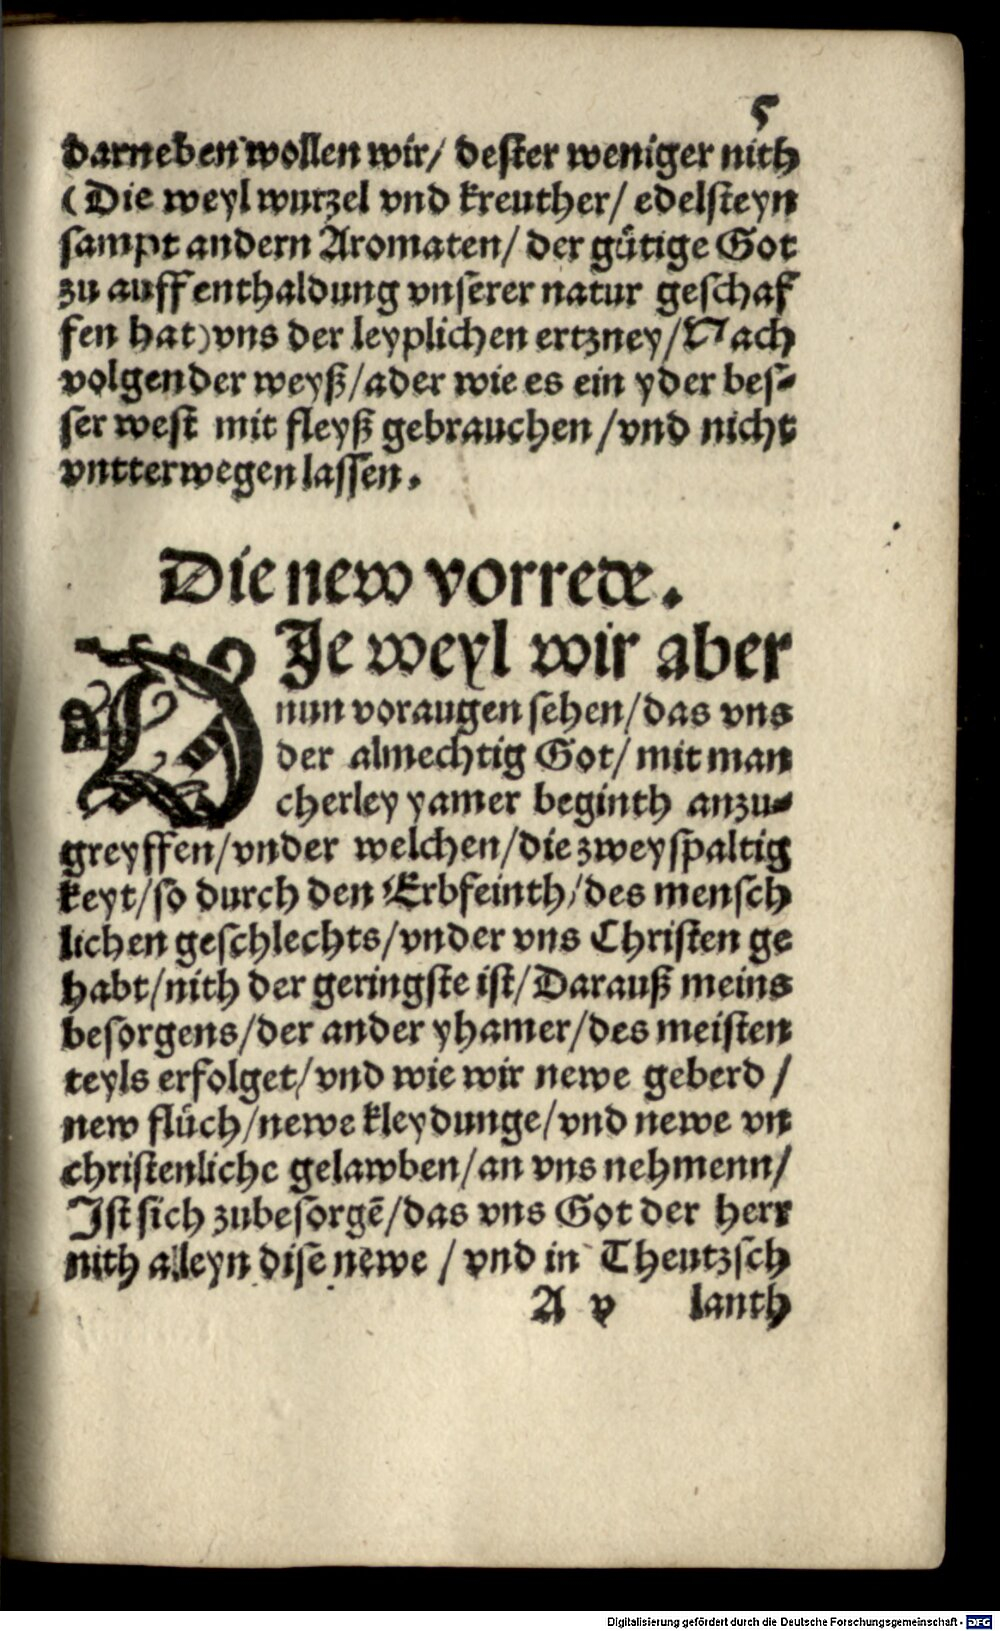 5
darneben wollen wir/ dester weniger nith
(Die weyl wurzel vnd kreuther/ edelsteyn
sampt andern Aromaten/ der gütige Got
zu auffenthaldung vnserer natur geschaf
fen hat) vns der leyplichen ertzney/ Nach
volgender weyß/ ader wie es ein yder bes-
ser west mit fleyß gebrauchen/ vnd nicht
vntterwegen lassen.
Die new vorrede.
DIe weyl wir aber
nun voraugen sehen/ das vns
der almechtig Got/ mit man
cherley yamer beginth anzu-
greyffen/ vnder welchen/ die zweyspaltig
keyt/ so durch den Erbfeinth/ des mensch
lichen geschlechts/ vnder vns Christen ge
habt/ nith der geringste ist/ Darauß meins
besorgens/ der ander yhamer/ des meisten
teyls erfolget/ vnd wie wir newe geberd/
new flüch/ newe kleydunge/ vnd newe vn
christenliche gelawben/ an vns nehmenn/
Ist sich zubesorgē/ das vns Got der herr
nith alleyn dise newe/ vnd in Theutzsch
A v lanth
Digitalisierung gefördert durch die Deutsche Forschungsgemeinschaft - DFG